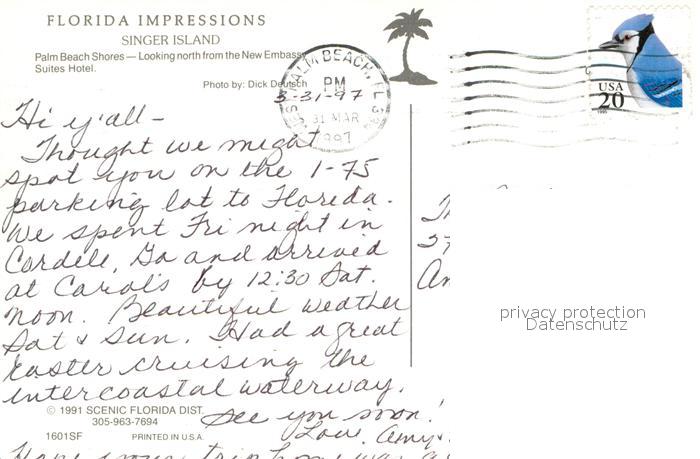 FLORIDA IMPRESSIONS
SINGER ISLAND
Palm Beach Shores — Looking north from the New Embassy
Suites Hotel.
Photo by: Dick Deutsch
PALM BEACH, FL
PM
31 MAR
1997
USA
20
3-31-97
Hi y'all -
Thought we might
spot you on the I-75
parking lot to Florida.
We spent Fri night in
Cordele, Ga and arrived
at Carol's by 12:30 Sat.
noon. Beautiful weather
Sat & Sun. Had a great
Easter cruising the
intercoastal waterway.
See you soon!
Love, Amy
© 1991 SCENIC FLORIDA DIST.
305-963-7694
1601SF PRINTED IN U.S.A.
Hope your trip home was
privacy protection
Datenschutz